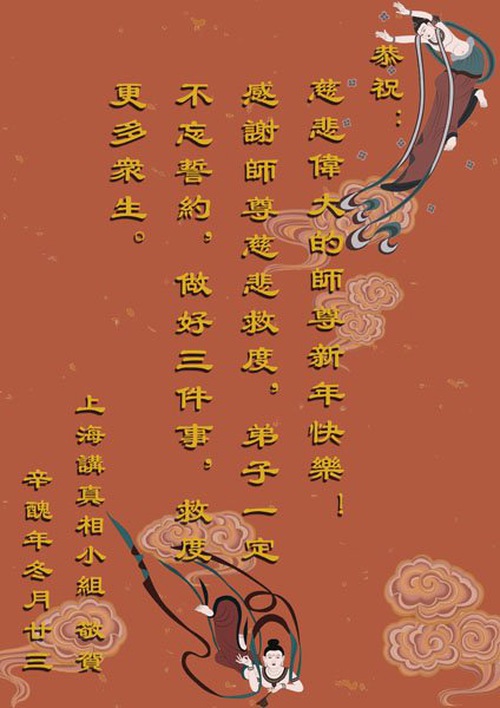 恭祝：
慈悲偉大的師尊新年快樂！
感謝師尊慈悲救度，弟子一定
不忘誓約，做好三件事，救度
更多衆生。
上海講真相小組 敬賀
辛醜年冬月廿三